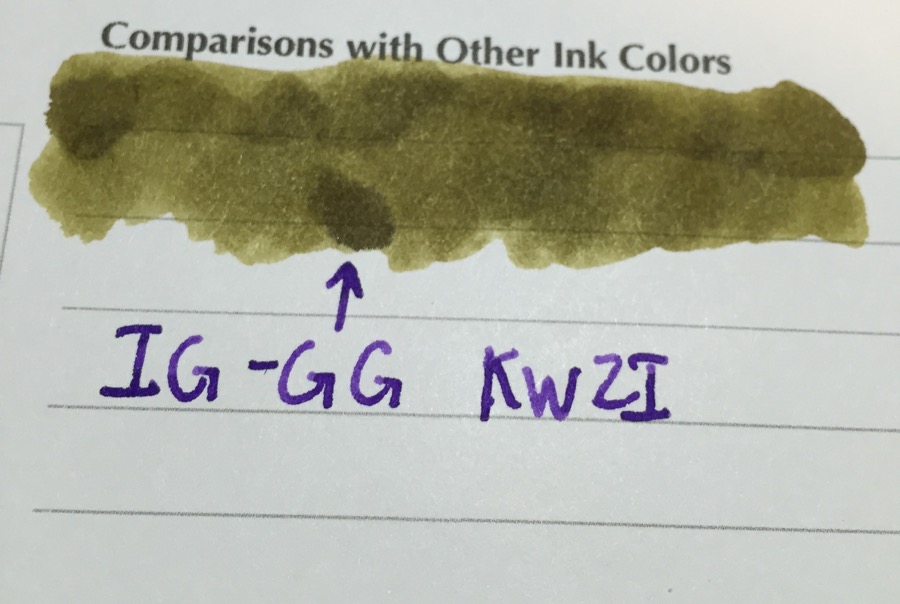 Comparisons with Other Ink Colors
IG-GG KWZI